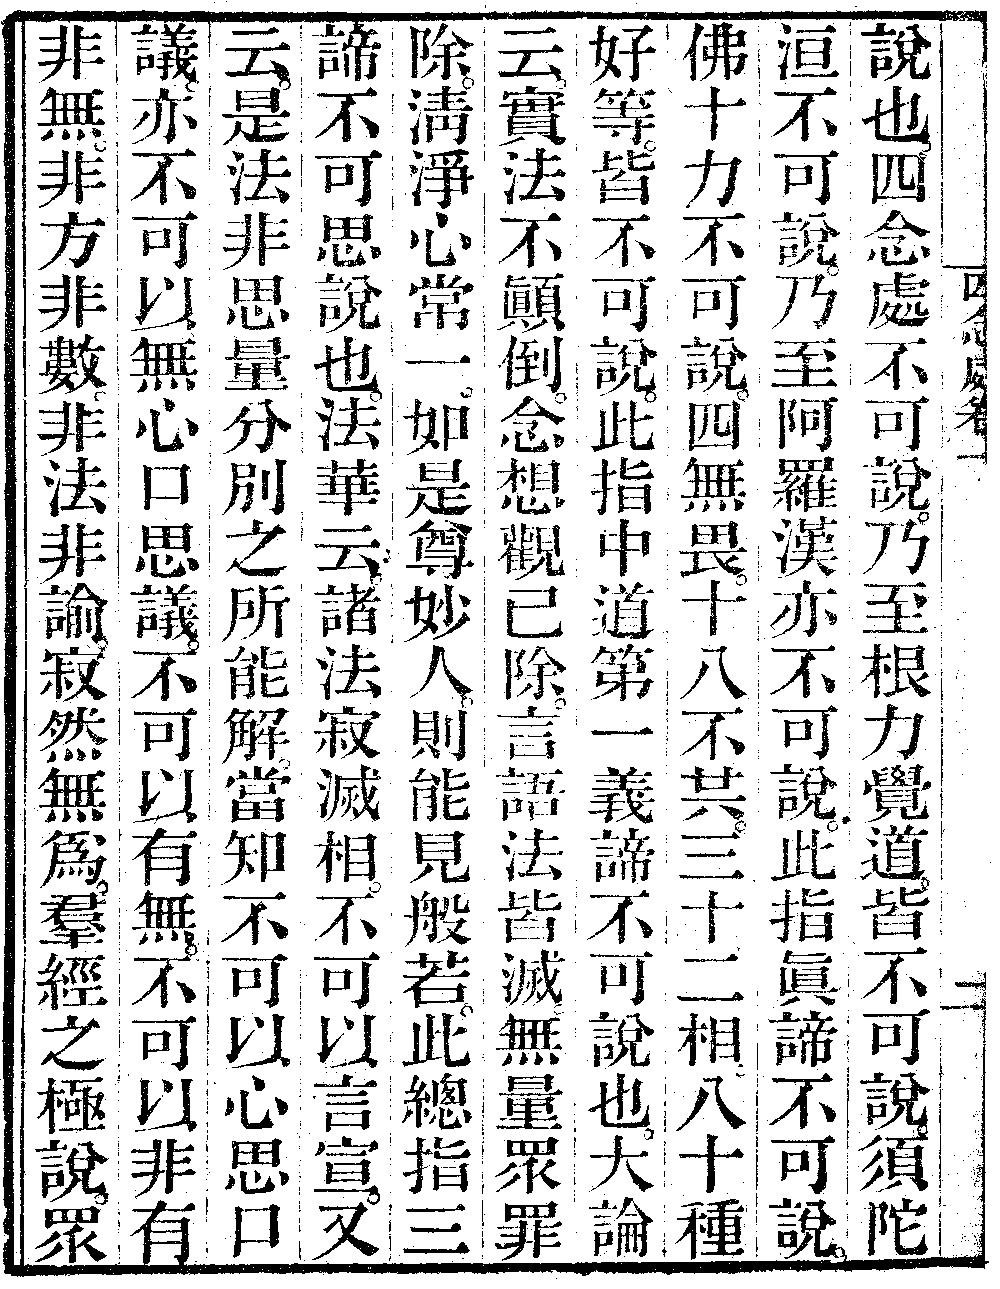 說也四念處不可說乃至根力覺道皆不可說須陀
洹不可說乃至阿羅漢亦不可說此指眞諦不可說
佛十力不可說四無畏十八不共三十二相八十種
好等皆不可說此指中道第一義諦不可說也大論
云實法不顚倒念想觀已除言語法皆滅無量眾罪
除淸淨心常一如是尊妙人則能見般若此總指三
諦不可思說也法華云諸法寂滅相不可以言宣又
云是法非思量分別之所能解當知不可以心思口
議亦不可以無心口思議不可以有無不可以非有
非無非方非數非法非諭寂然無爲羣經之極說眾
四念處卷一
二